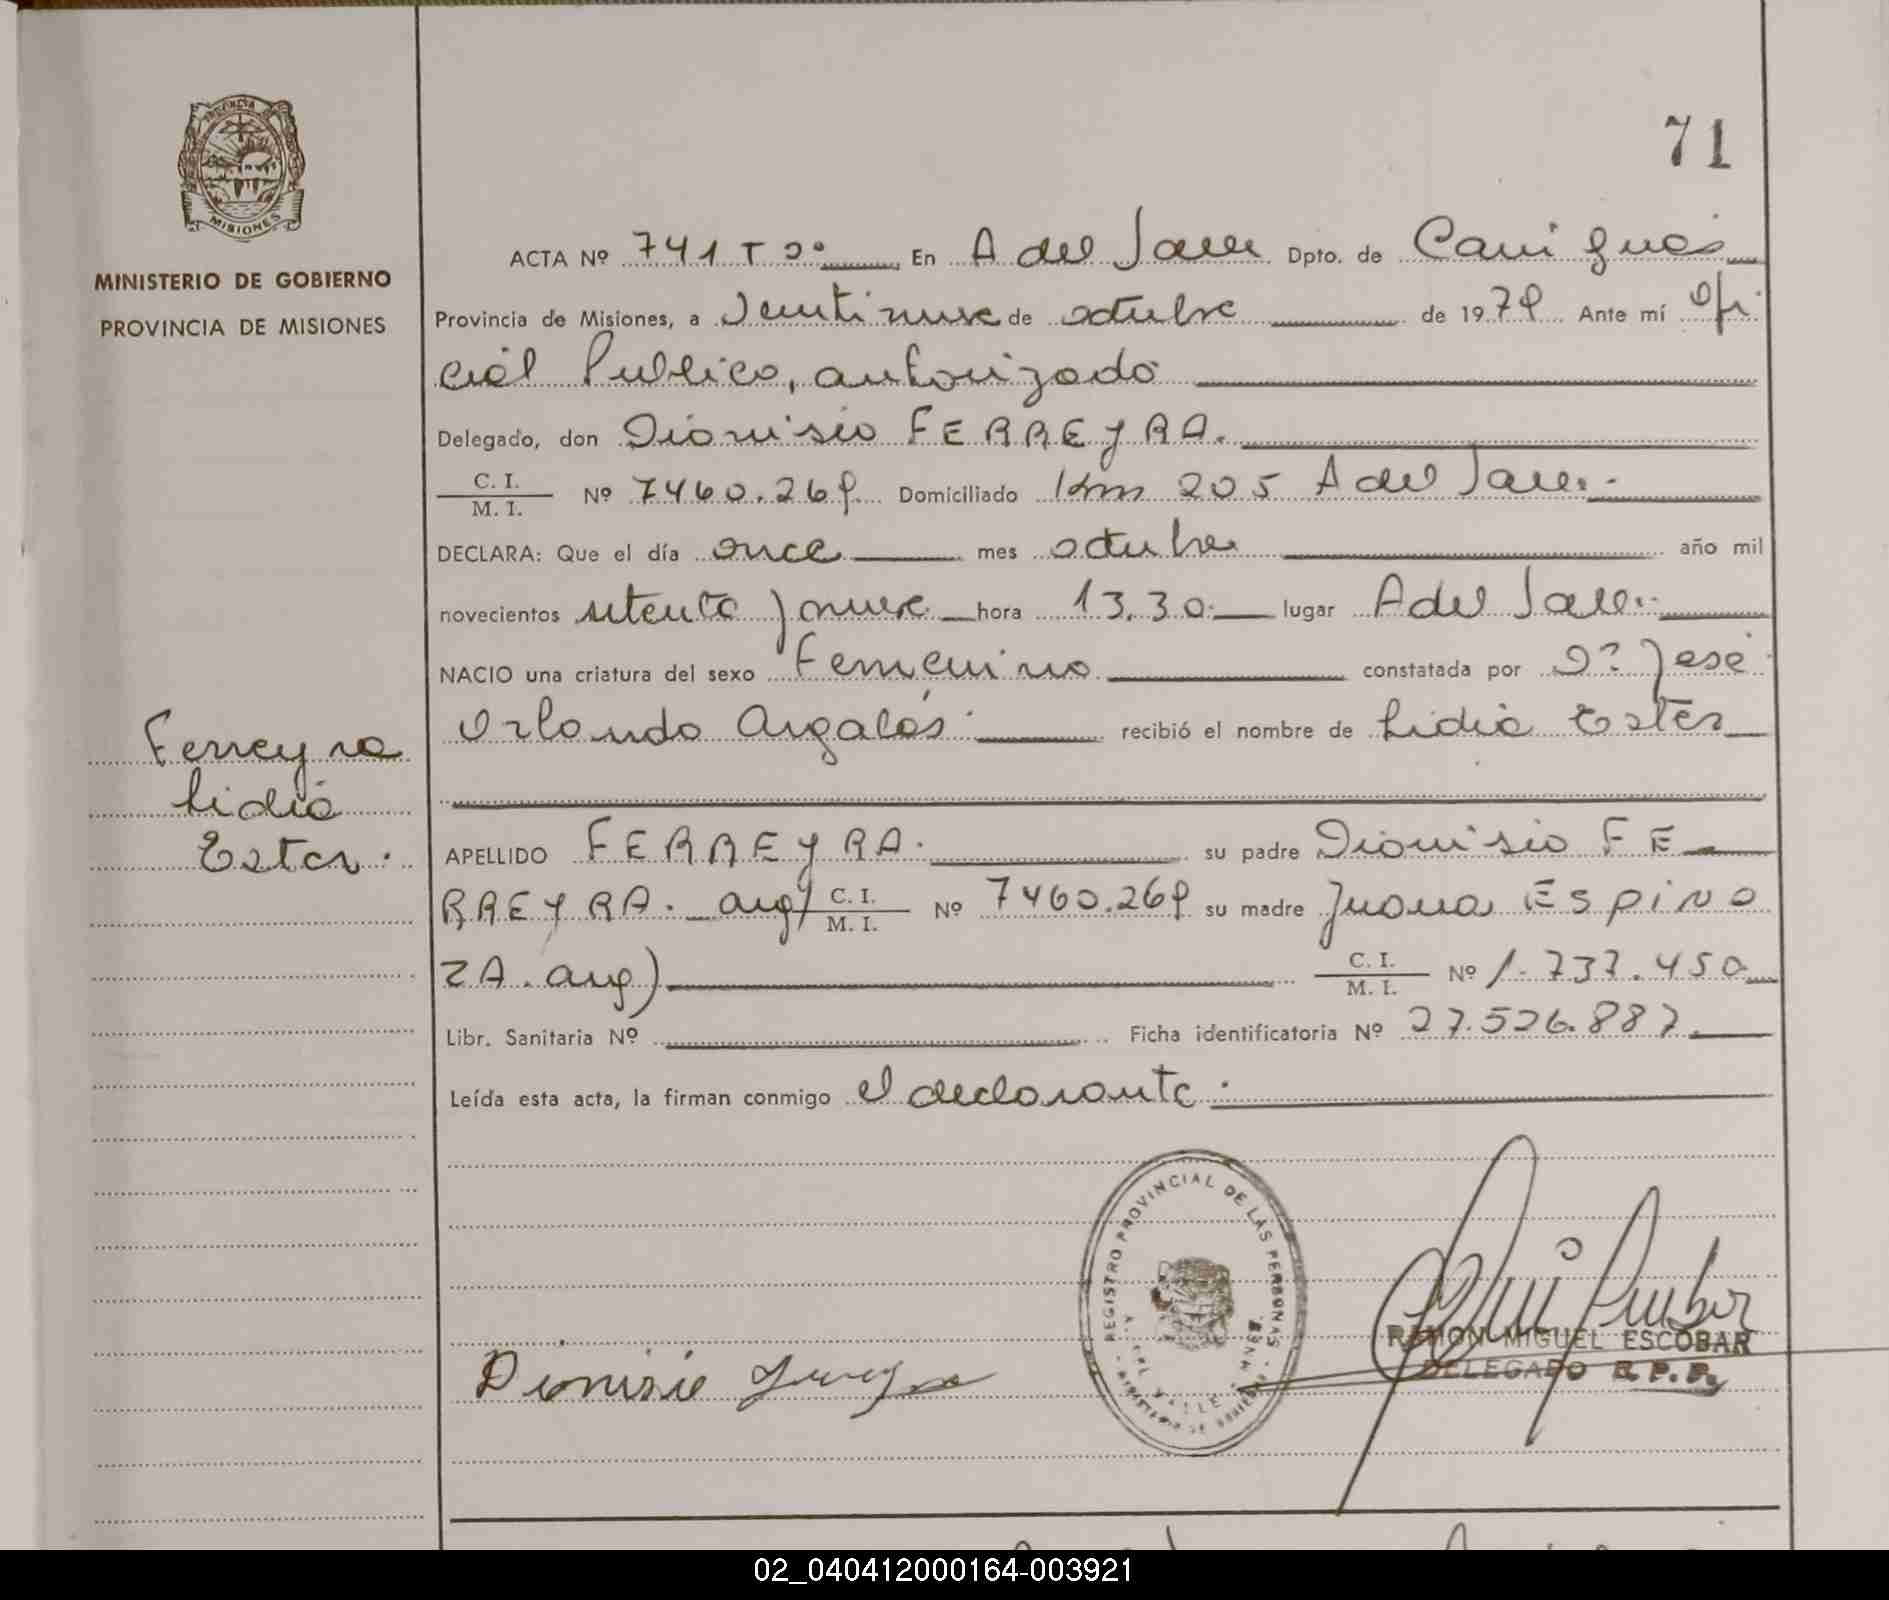 71
PROVINCIA
MISIONES
MINISTERIO DE GOBIERNO
PROVINCIA DE MISIONES
ACTA Nº 741 T 2º En A del Valle Dpto. de Cainguás
Provincia de Misiones, a Veintinueve de octubre de 1979 Ante mí Ofi
cial Publico, autorizado
Delegado, don Dionisio FERREYRA.
C. I.
M. I. Nº 7460.269 Domiciliado Km 205 A del Valle.
DECLARA: Que el día once mes octubre año mil
novecientos setenta y nueve hora 13.30. lugar A del Valle.
NACIO una criatura del sexo Femenino constatada por Dr José
Orlando Argalás. recibió el nombre de Lidia Ester
Ferreyra
Lidia
Ester.
APELLIDO FERREYRA. su padre Dionisio FE
RREYRA. arg) C. I.
M. I. Nº 7460.269 su madre Juana Espino
ZA. arg) C. I.
M. I. Nº 1.737.450
Libr. Sanitaria Nº Ficha identificatoria Nº 27.526.887.
Leída esta acta, la firman conmigo el declarante.
REGISTRO PROVINCIAL DE LAS PERSONAS
Dionisio Ferreyra
RAMON MIGUEL ESCOBAR
DELEGADO R.P.P.
02_040412000164-003921